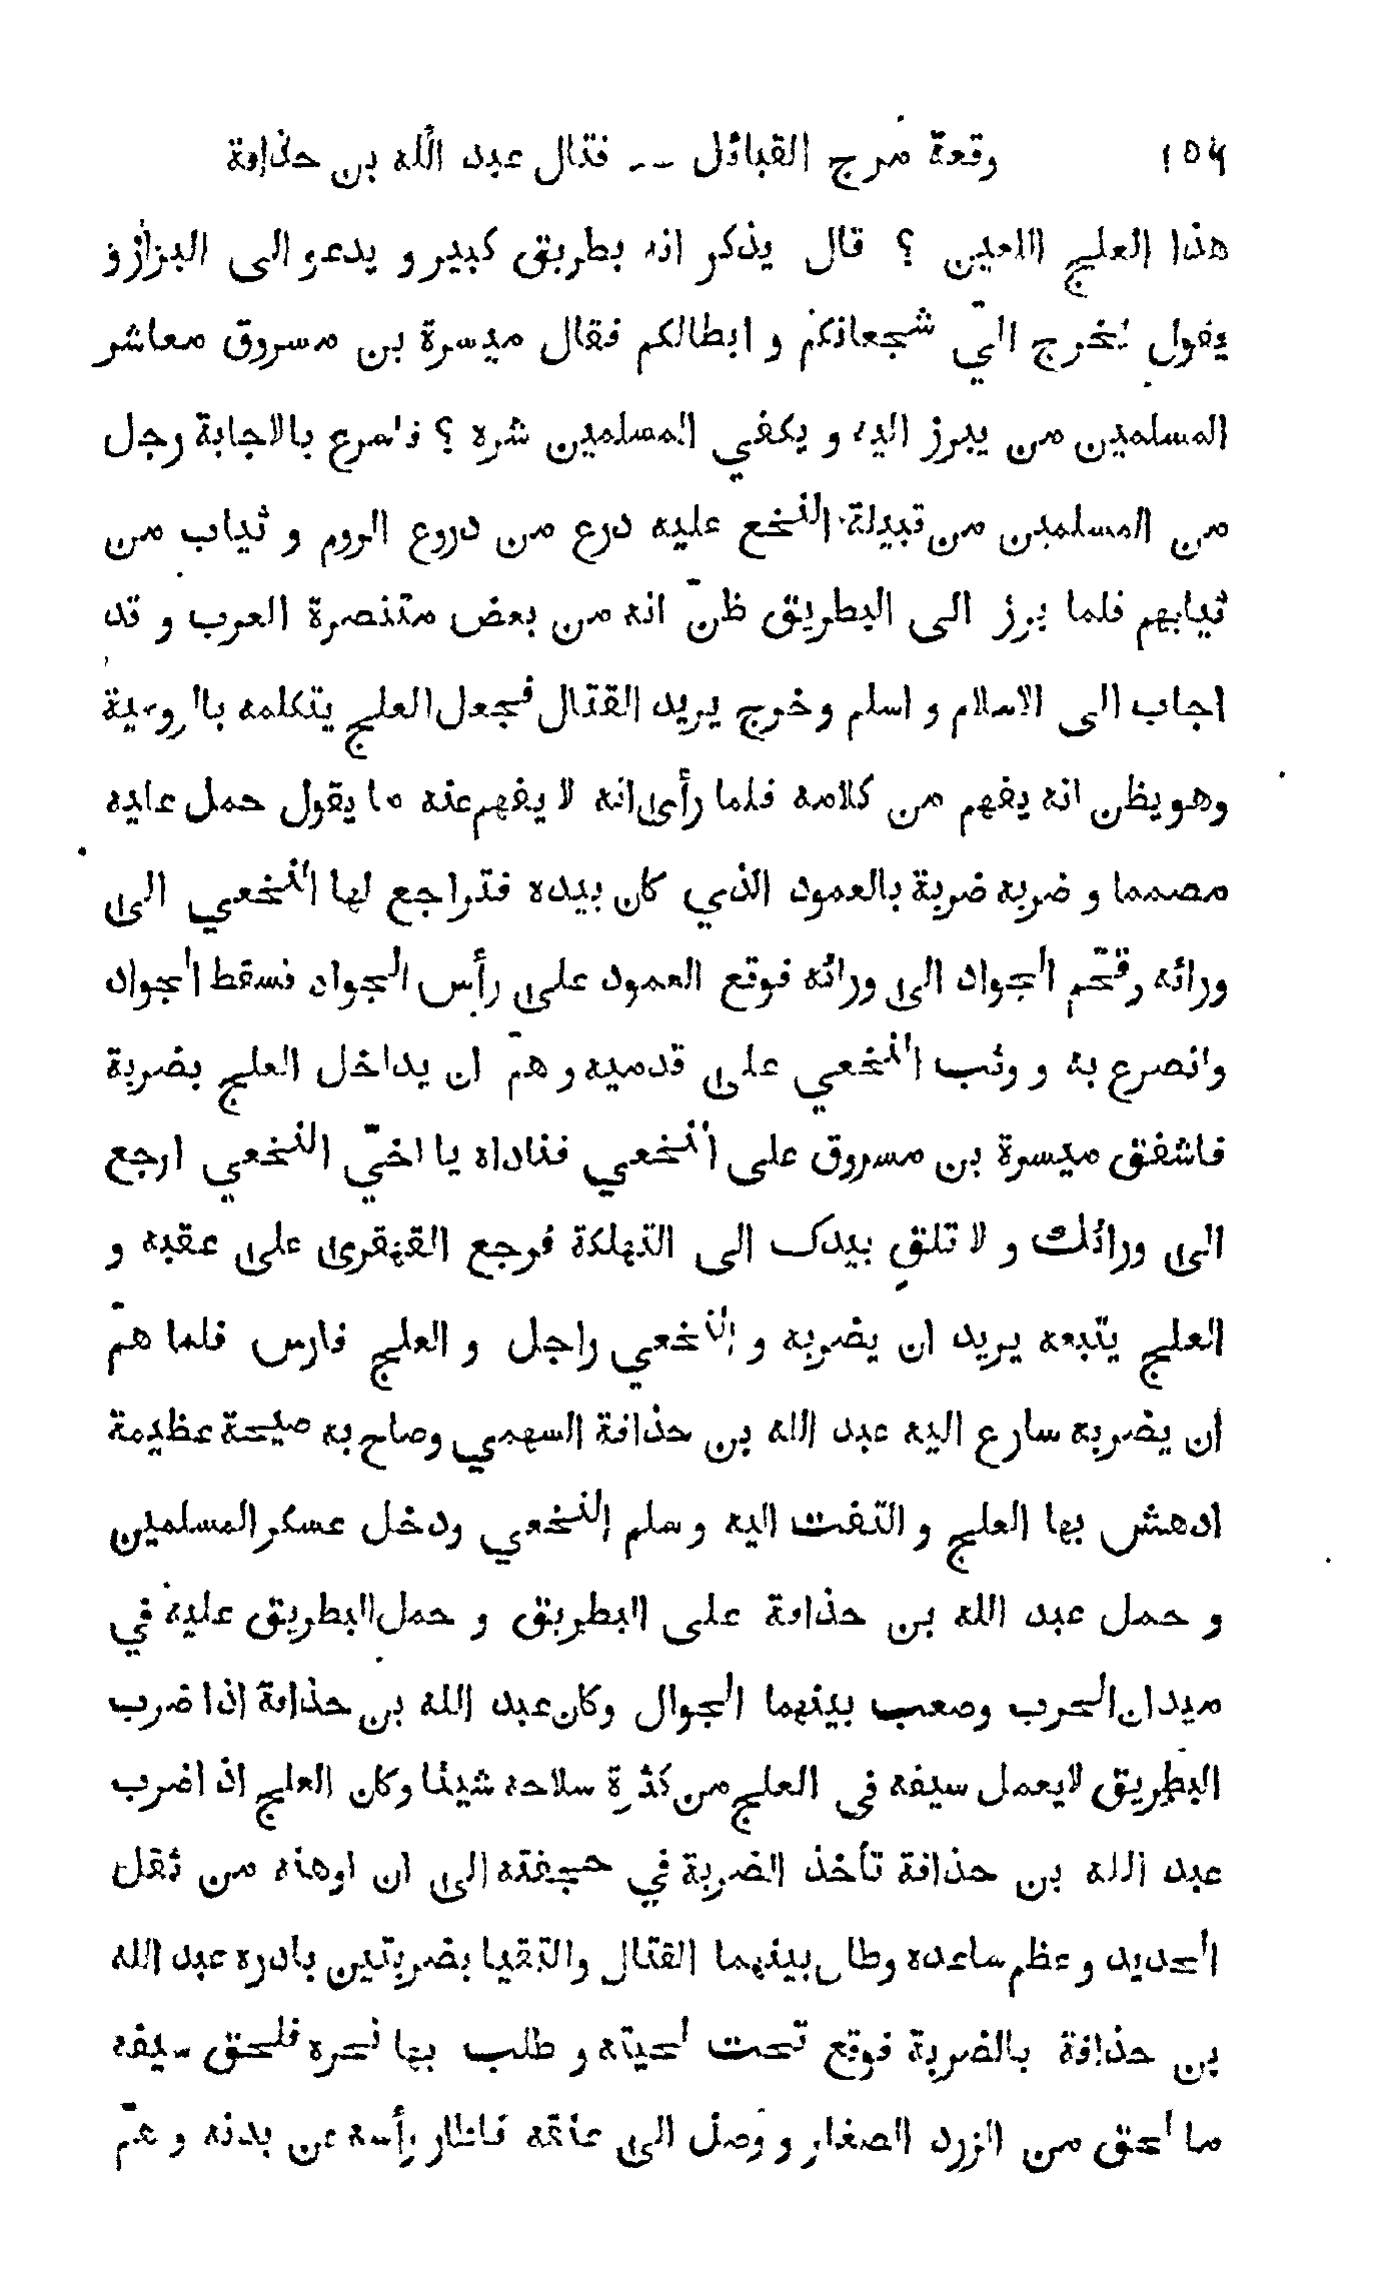 ١٥٦ وقعة مرج القبائل -- قتال عبد الله بن حذافة
هذا العلج اللعين ؟ قال يذكر انه بطريق كبير و يدعو الى البراز و
يقول يخرج اليّ شجعانكم و ابطالكم فقال ميسرة بن مسروق معاشر
المسلمين من يبرز اليه و يكفي المسلمين شره ؟ فاسرع بالاجابة رجل
من المسلمين من قبيلة النخع عليه درع من دروع الروم و ثياب من
ثيابهم فلما برز الى البطريق ظنّ انه من بعض متنصرة العرب و قد
اجاب الى الاسلام و اسلم وخرج يريد القتال فجعل العلج يتكلمه بالرومية
وهو يظن انه يفهم من كلامه فلما رأى انه لا يفهم عنه ما يقول حمل عليه
مصمما و ضربه ضربة بالعمود الذي كان بيده فتراجع لها النخعي الى
ورائه و قحّم الجواد الى ورائه فوقع العمود على رأس الجواد فسقط الجواد
وانصرع به و وثب النخعي على قدميه و همّ ان يداخل العلج بضربة
فاشفق ميسرة بن مسروق على النخعي فناداه يا اخيّ النخعي ارجع
الى ورائك و لا تلقِ بيدك الى التهلكة فرجع القهقرى على عقبه و
العلج يتبعه يريد ان يضربه و النخعي راجل و العلج فارس فلما همّ
ان يضربه سارع اليه عبد الله بن حذافة السهمي وصاح به صيحة عظيمة
ادهش بها العلج و التفت اليه و سلم النخعي ودخل عسكر المسلمين
و حمل عبد الله بن حذافة على البطريق و حمل البطريق عليه في
ميدان الحرب وصعب بينهما الجوال وكان عبد الله بن حذافة اذا ضرب
البطريق لايعمل سيفه في العلج من كثرة سلاحه شيئا وكان العلج اذ اضرب
عبد الله بن حذافة تأخذ الضربة في حجفته الى ان اوهنه من ثقل
الحديد و عظم ساعده وطال بينهما القتال والتقيا بضربتين بادره عبد الله
بن حذافة بالضربة فوقع تحت لحيته و طلب بها نحره فلحق سيفه
ما لحق من الزرد الصغار و وصل الى عنقه فاطار رأسه عن بدنه و همّ